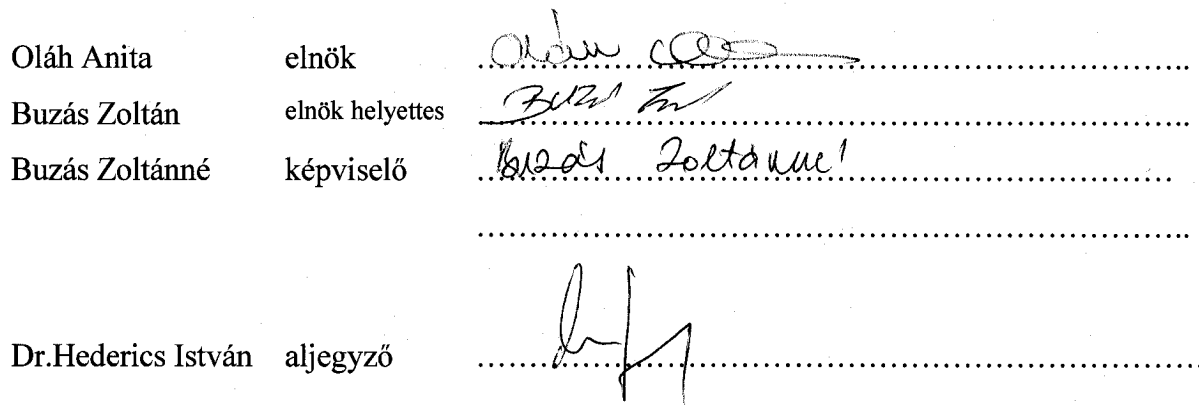 Oláh Anita elnök Oláh
Buzás Zoltán elnök helyettes
Buzás Zoltánné képviselő Buzás Zoltánné
Dr.Hederics István aljegyző